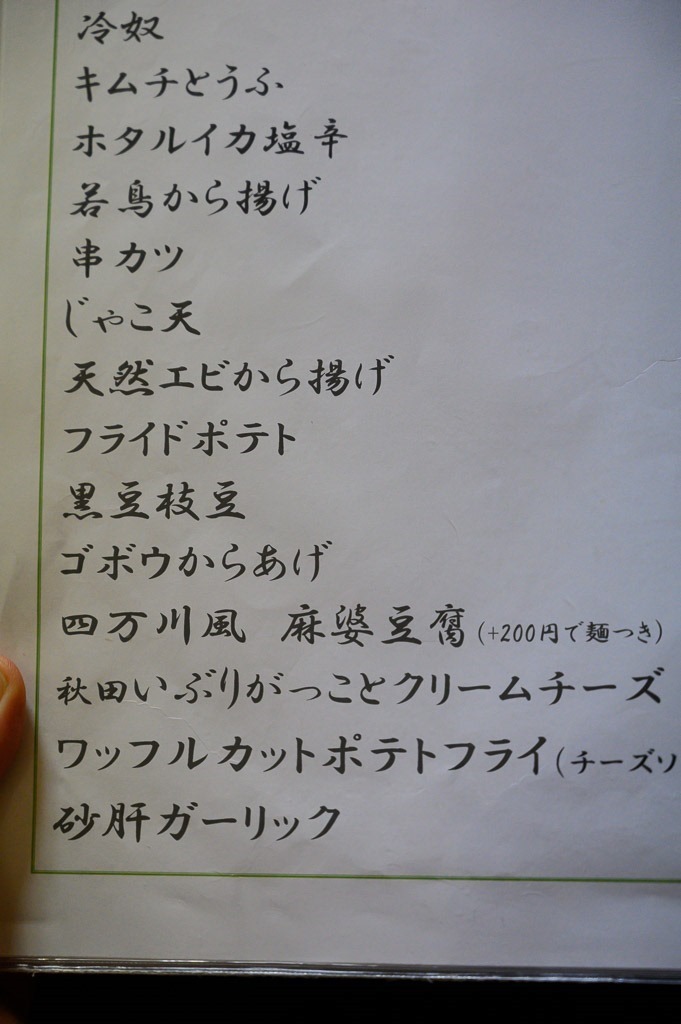 冷奴
キムチとうふ
ホタルイカ塩辛
若鳥から揚げ
串カツ
じゃこ天
天然エビから揚げ
フライドポテト
黒豆枝豆
ゴボウからあげ
四万川風 麻婆豆腐(+200円で麺つき)
秋田いぶりがっことクリームチーズ
ワッフルカットポテトフライ(チーズソ
砂肝ガーリック